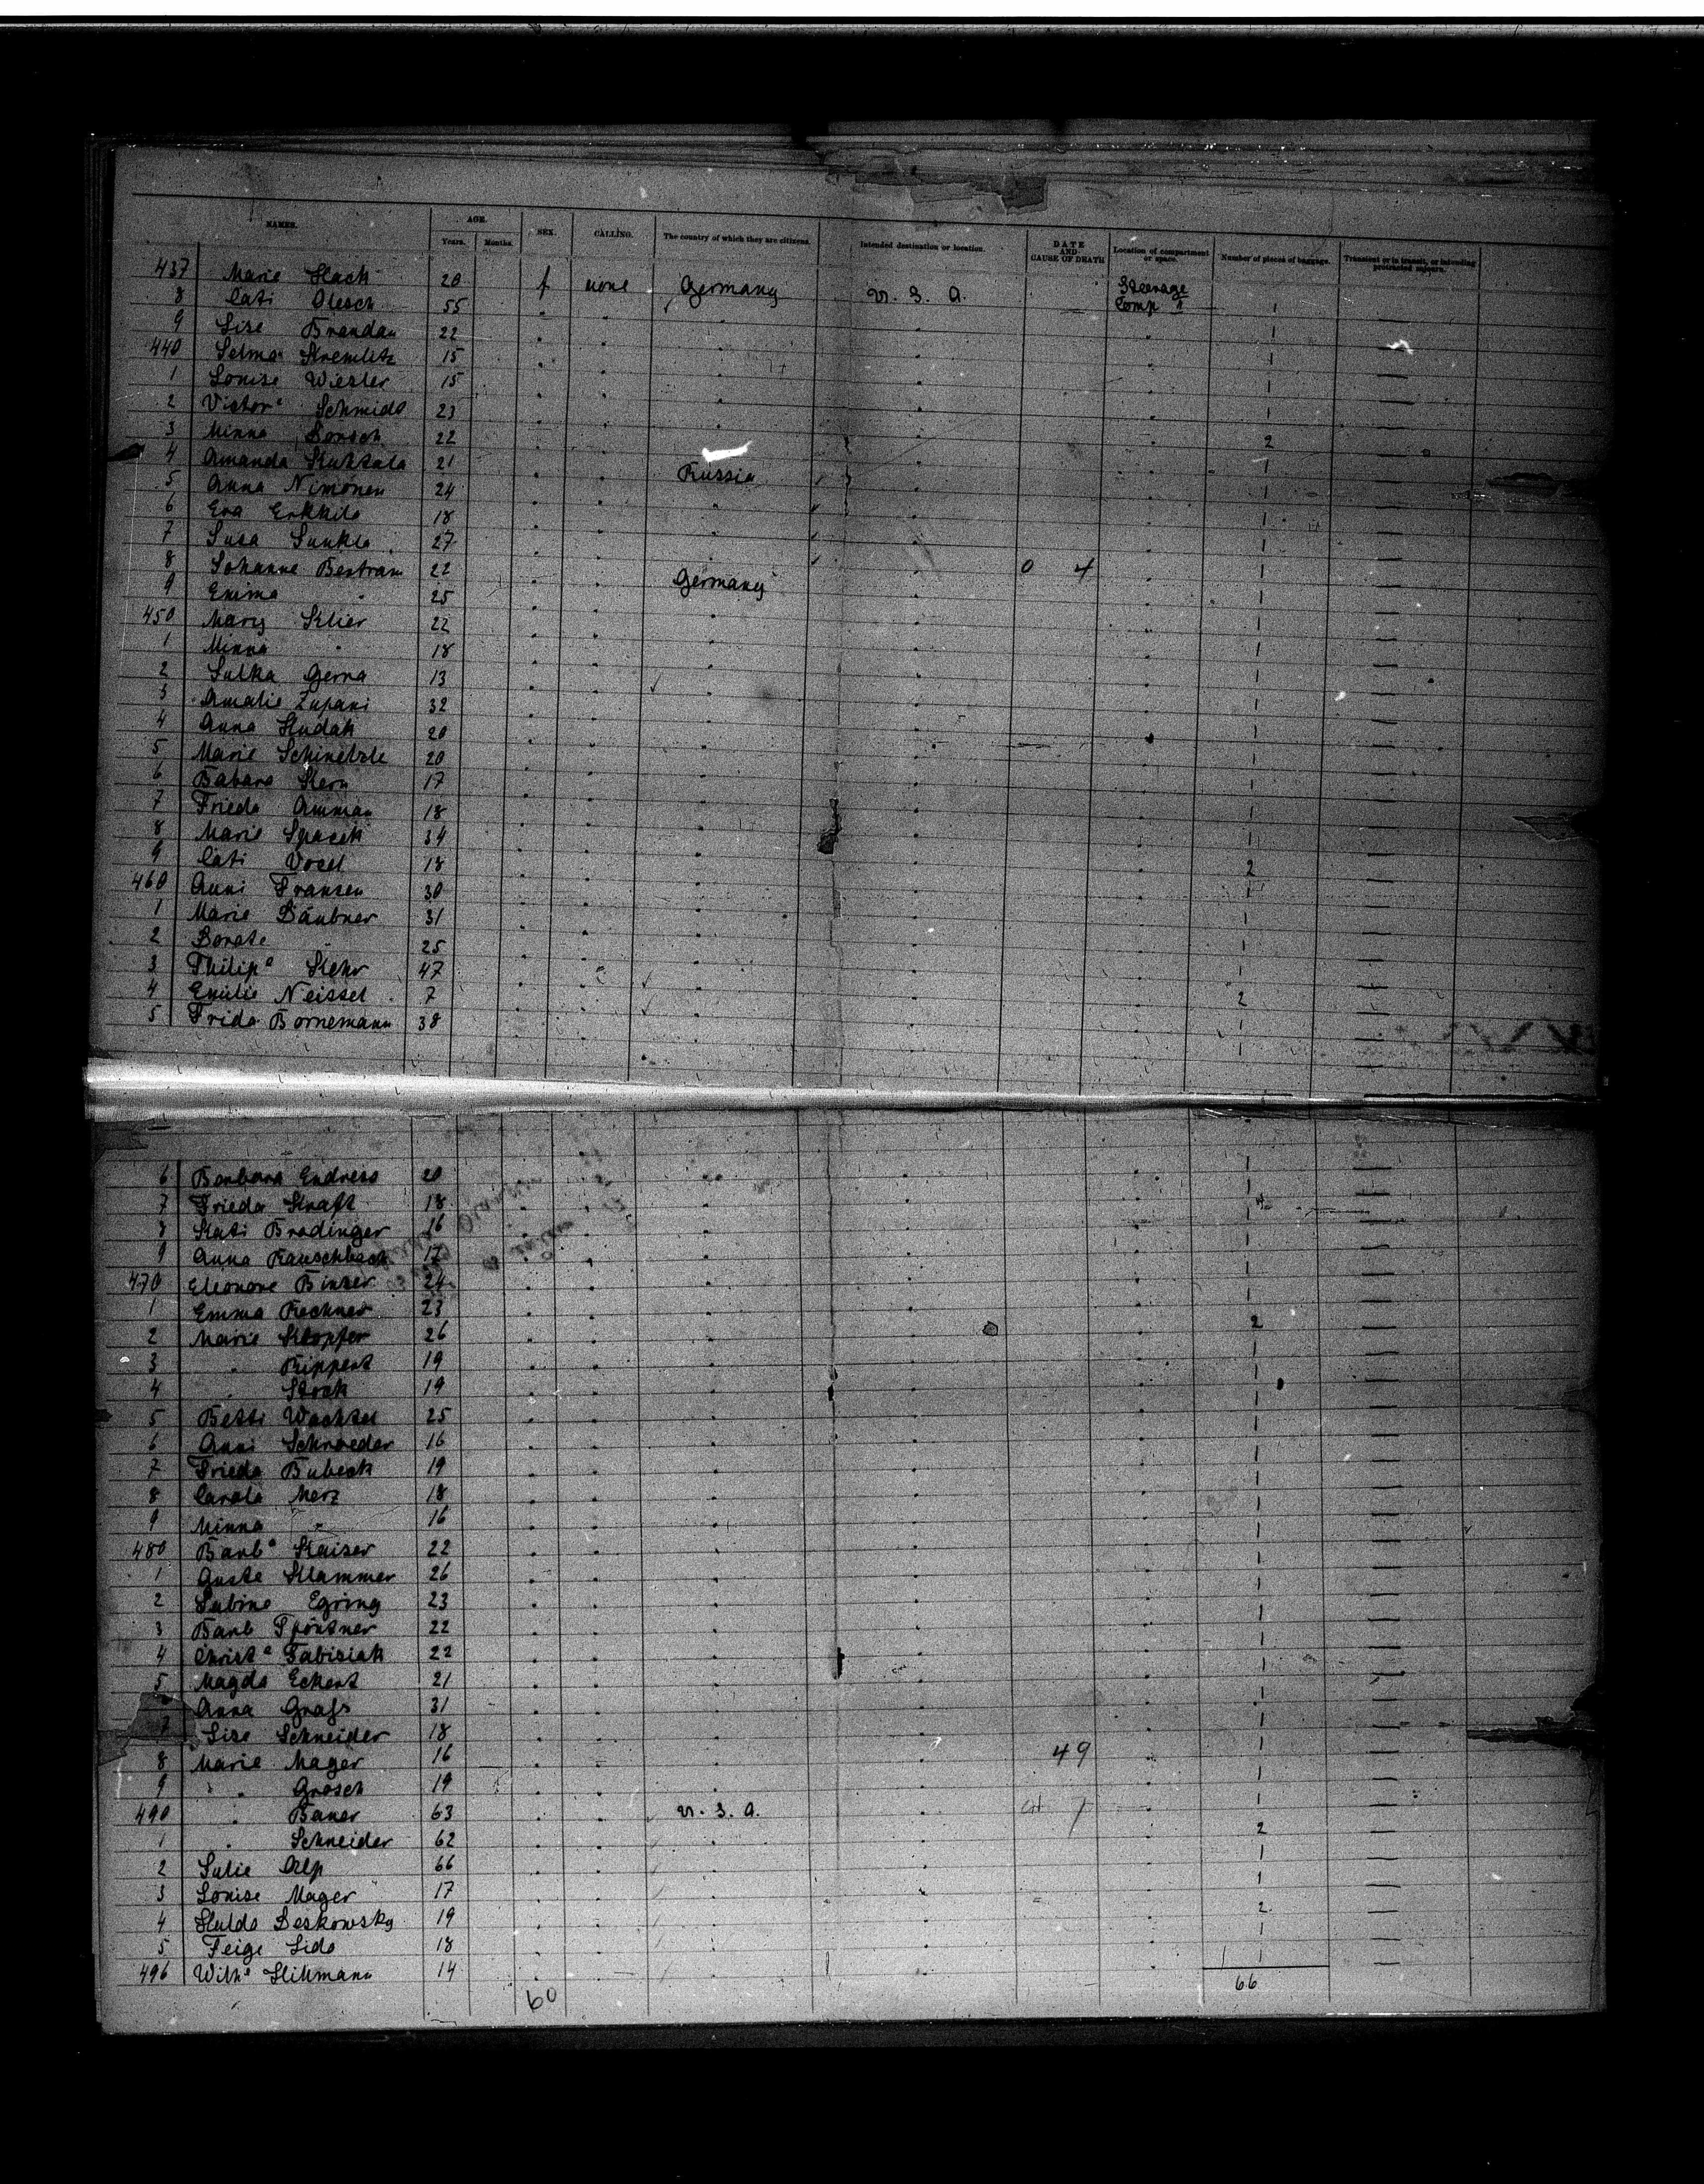 NAMES. AGE. SEX. CALLING. The country of which they are citizens. Intended destination or location. DATE AND CAUSE OF DEATH Location of compartment or space. Number of pieces of baggage. Transient or in transit, or intending protracted sojourn.
Years. Months.
437 Marie 20 f none Germany U. S. A. Steerage
8 Cati Olesch 55 " " " " Comp 1
9 Lise Brandau 22 1
440 Selma 15 1
1 Louise Wiesler 15 1
2 Victor a Schmidt 23 1
3 Minna 22 2
4 Amanda 21 Russia 1
5 Anna Nimonen 24 " 1
6 Eva Erkkila 18 " 1
7 27 " 1
8 Johanne Bertram 22 Germany 0 4 1
9 Emma " 25 " 1
450 Mary Klier 22 " 1
1 Minna " 18 " 1
2 Julka Gerna 13 " 1
3 Amalie Zupani 32 " 1
4 Anna Hudak 20 " 1
5 Marie Schinelzle 20 " 1
6 Babara Kern 17 " 1
7 Frieda Amman 18 " 1
8 Marie Spacek 34 " 1
9 Cati Vocel 18 " 2
460 Anni Fransen 30 " 1
1 Marie Däubner 31 " 1
2 Dorate " 25 " 1
3 Philip a Kehr 47 " 1
4 Emilie Neissel 7 " 2
5 Frida Bornemann 38 " 1
6 Barbara Endress 20 " 1
7 Frieda Kraft 18 " 1
8 Kati Brodinger 16 " 1
9 Anna Rauschbach 17 " 1
470 Eleonore Binzer 24 " 1
1 Emma Fechner 23 " 1
2 Marie Klopfer 26 " 2
3 " Rippert 19 " 1
4 " Stock 19 " 1
5 Betti Wachtel 25 " 1
6 Anni Schroeder 16 " 1
7 Frieda Bubeck 19 " 1
8 Carola Merz 18 " 1
9 Minna " 16 " 1
480 Barb a Kaiser 22 " 1
1 Guste Klammer 26 " 1
2 Sabine Egring 23 " 1
3 Barb Pförtner 22 " 1
4 Christ a Fabisiak 22 " 1
5 Magda Eckert 21 " 1
Anna Grafs 31 " 1
7 Lise Schneider 18 " 1
8 Marie Mager 16 " 49 1
9 " Grosch 19 " 1
490 " Bauer 63 U. S. A. 1
1 " Schneider 62 " 2
2 Julie Alp 66 " 1
3 Louise Mager 17 " 1
4 Hulda Deskowsky 19 " 2
5 Feige Lido 18 " 1
496 Wilh e Hillmann 14 " 1 1
60 66